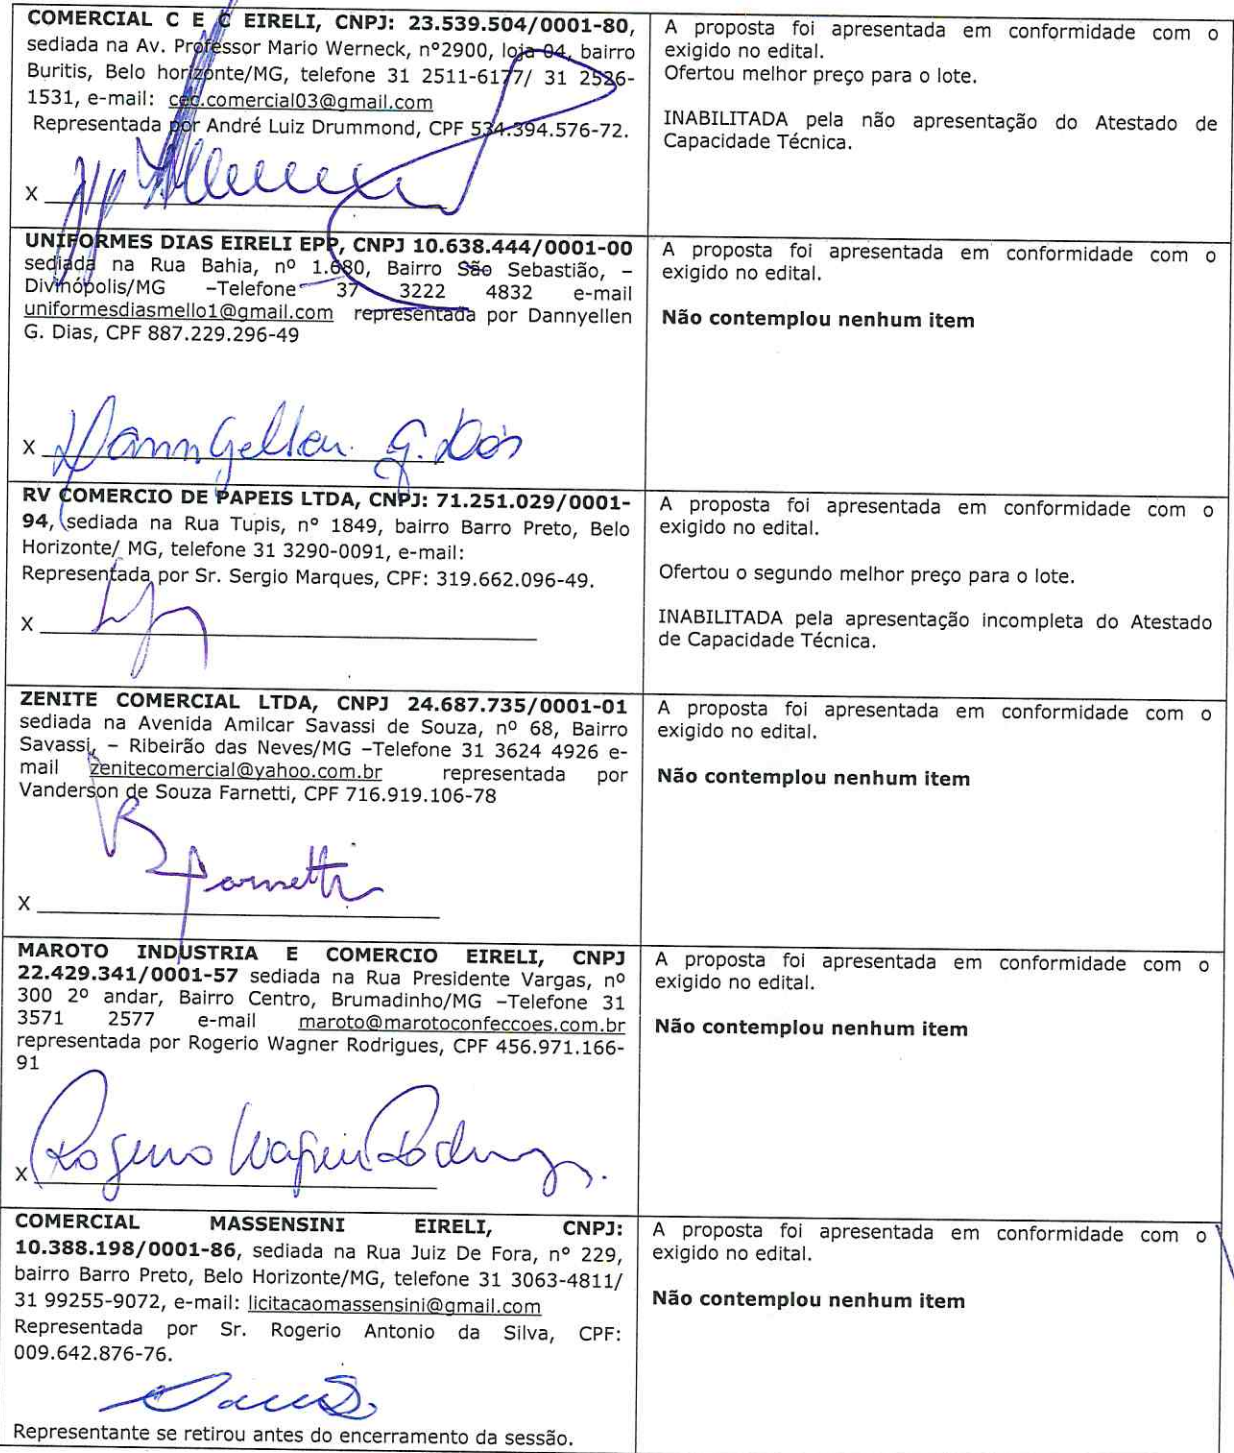 COMERCIAL C E C EIRELI, CNPJ: 23.539.504/0001-80,
sediada na Av. Professor Mario Werneck, nº2900, loja 04, bairro
Buritis, Belo horizonte/MG, telefone 31 2511-6177/ 31 2526-
1531, e-mail: cec.comercial03@gmail.com
Representada por André Luiz Drummond, CPF 534.394.576-72.
X
A proposta foi apresentada em conformidade com o
exigido no edital.
Ofertou melhor preço para o lote.
INABILITADA pela não apresentação do Atestado de
Capacidade Técnica.
UNIFORMES DIAS EIRELI EPP, CNPJ 10.638.444/0001-00
sediada na Rua Bahia, nº 1.680, Bairro São Sebastião, –
Divinópolis/MG –Telefone 37 3222 4832 e-mail
uniformesdiasmello1@gmail.com representada por Dannyellen
G. Dias, CPF 887.229.296-49
X Dannyellen G. Dias
A proposta foi apresentada em conformidade com o
exigido no edital.
Não contemplou nenhum item
RV COMERCIO DE PAPEIS LTDA, CNPJ: 71.251.029/0001-
94, sediada na Rua Tupis, nº 1849, bairro Barro Preto, Belo
Horizonte/ MG, telefone 31 3290-0091, e-mail:
Representada por Sr. Sergio Marques, CPF: 319.662.096-49.
X
A proposta foi apresentada em conformidade com o
exigido no edital.
Ofertou o segundo melhor preço para o lote.
INABILITADA pela apresentação incompleta do Atestado
de Capacidade Técnica.
ZENITE COMERCIAL LTDA, CNPJ 24.687.735/0001-01
sediada na Avenida Amilcar Savassi de Souza, nº 68, Bairro
Savassi, – Ribeirão das Neves/MG –Telefone 31 3624 4926 e-
mail zenitecomercial@yahoo.com.br representada por
Vanderson de Souza Farnetti, CPF 716.919.106-78
X Farnetti
A proposta foi apresentada em conformidade com o
exigido no edital.
Não contemplou nenhum item
MAROTO INDUSTRIA E COMERCIO EIRELI, CNPJ
22.429.341/0001-57 sediada na Rua Presidente Vargas, nº
300 2º andar, Bairro Centro, Brumadinho/MG –Telefone 31
3571 2577 e-mail maroto@marotoconfeccoes.com.br
representada por Rogerio Wagner Rodrigues, CPF 456.971.166-
91
X Rogerio Wagner Rodrigues
A proposta foi apresentada em conformidade com o
exigido no edital.
Não contemplou nenhum item
COMERCIAL MASSENSINI EIRELI, CNPJ:
10.388.198/0001-86, sediada na Rua Juiz De Fora, nº 229,
bairro Barro Preto, Belo Horizonte/MG, telefone 31 3063-4811/
31 99255-9072, e-mail: licitacaomassensini@gmail.com
Representada por Sr. Rogerio Antonio da Silva, CPF:
009.642.876-76.
Representante se retirou antes do encerramento da sessão.
A proposta foi apresentada em conformidade com o
exigido no edital.
Não contemplou nenhum item